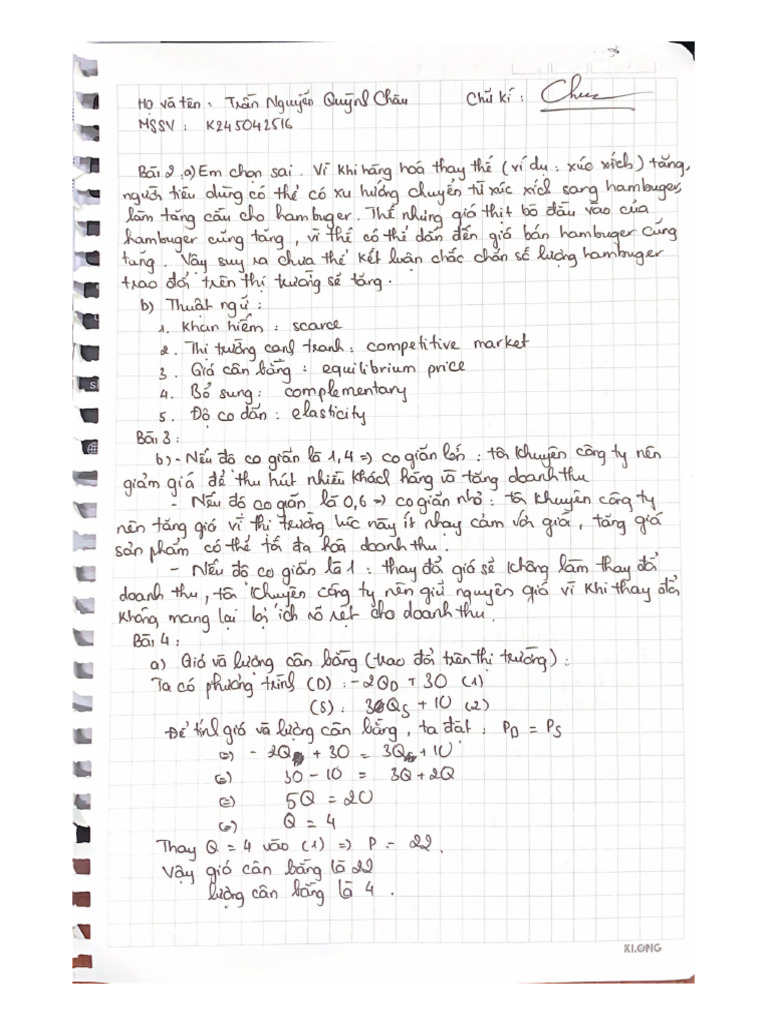 Họ và tên : Trần Nguyễn Quỳnh Châu Chữ kí :
MSSV : K245042516
Bài 2. a) Em chọn sai. Vì khi hàng hoá thay thế (ví dụ : xúc xích) tăng,
người tiêu dùng có thể có xu hướng chuyển từ xúc xích sang hambuger,
làm tăng cầu cho hambuger. Thế nhưng giá thịt bò đầu vào của
hambuger cũng tăng, vì thế có thể dẫn đến giá bán hambuger cũng
tăng. Vậy suy ra chưa thể kết luận chắc chắn số lượng hamburger
trao đổi trên thị trường sẽ tăng.
b) Thuật ngữ :
1. Khan hiếm : scarce
2. Thị trường cạnh tranh : competitive market
3. Giá cân bằng : equilibrium price
4. Bổ sung : complementary
5. Độ co dãn : elasticity
Bài 3 :
b) - Nếu độ co giãn là 1,4 => co giãn lớn : tôi khuyên công ty nên
giảm giá để thu hút nhiều khách hàng và tăng doanh thu
- Nếu độ co giãn là 0,6 => co giãn nhỏ : tôi khuyên công ty
nên tăng giá vì thị trường lúc này ít nhạy cảm với giá, tăng giá
sản phẩm có thể tối đa hóa doanh thu.
- Nếu độ co giãn là 1 : thay đổi giá sẽ không làm thay đổi
doanh thu, tôi khuyên công ty nên giữ nguyên giá vì khi thay đổi
không mang lại lợi ích rõ rệt cho doanh thu.
Bài 4 :
a) Giá và lượng cân bằng (trao đổi trên thị trường) :
Ta có phương trình (D) : -2QD + 30 (1)
(S) : 3QS + 10 (2)
Để tính giá và lượng cân bằng, ta đặt : PD = PS
(=) -2Q + 30 = 3Q + 10
(=) 30 - 10 = 3Q + 2Q
(=) 5Q = 20
(=) Q = 4
Thay Q = 4 vào (1) => P = 22.
Vậy giá cân bằng là 22
lượng cân bằng là 4.
KLONG